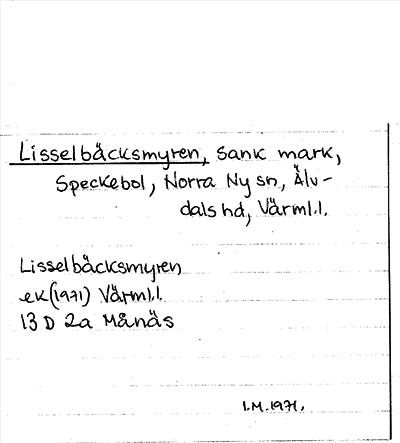 Lisselbäcksmyren, sank mark,
Speckebol, Norra Ny sn, Älv-
dals hd, Värml.l.
Lisselbäcksmyren
ek(1971) Värml.l.
13 D 2a Månäs
I.M.1971.